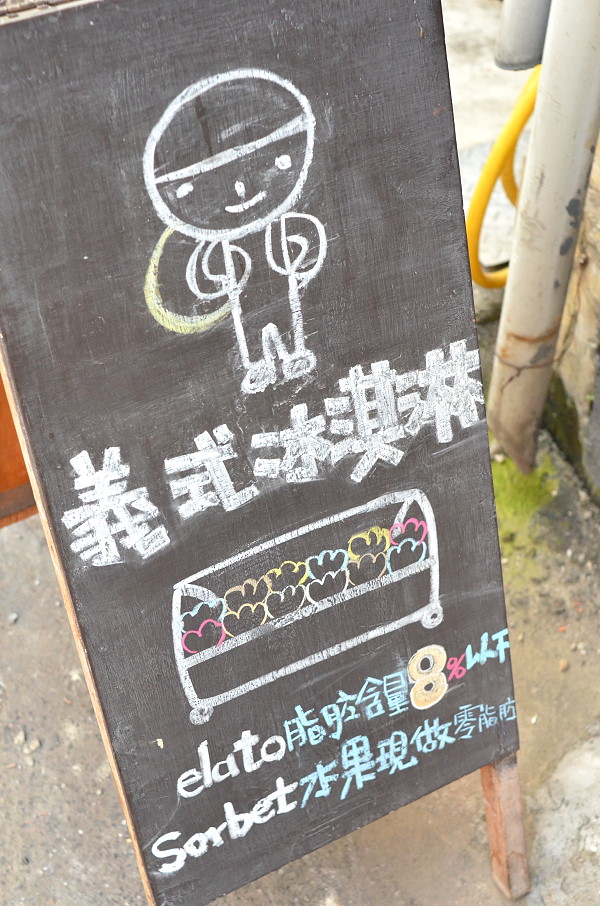 義式冰淇淋
elato脂肪含量8%以下
Sorbet水果現做零脂肪